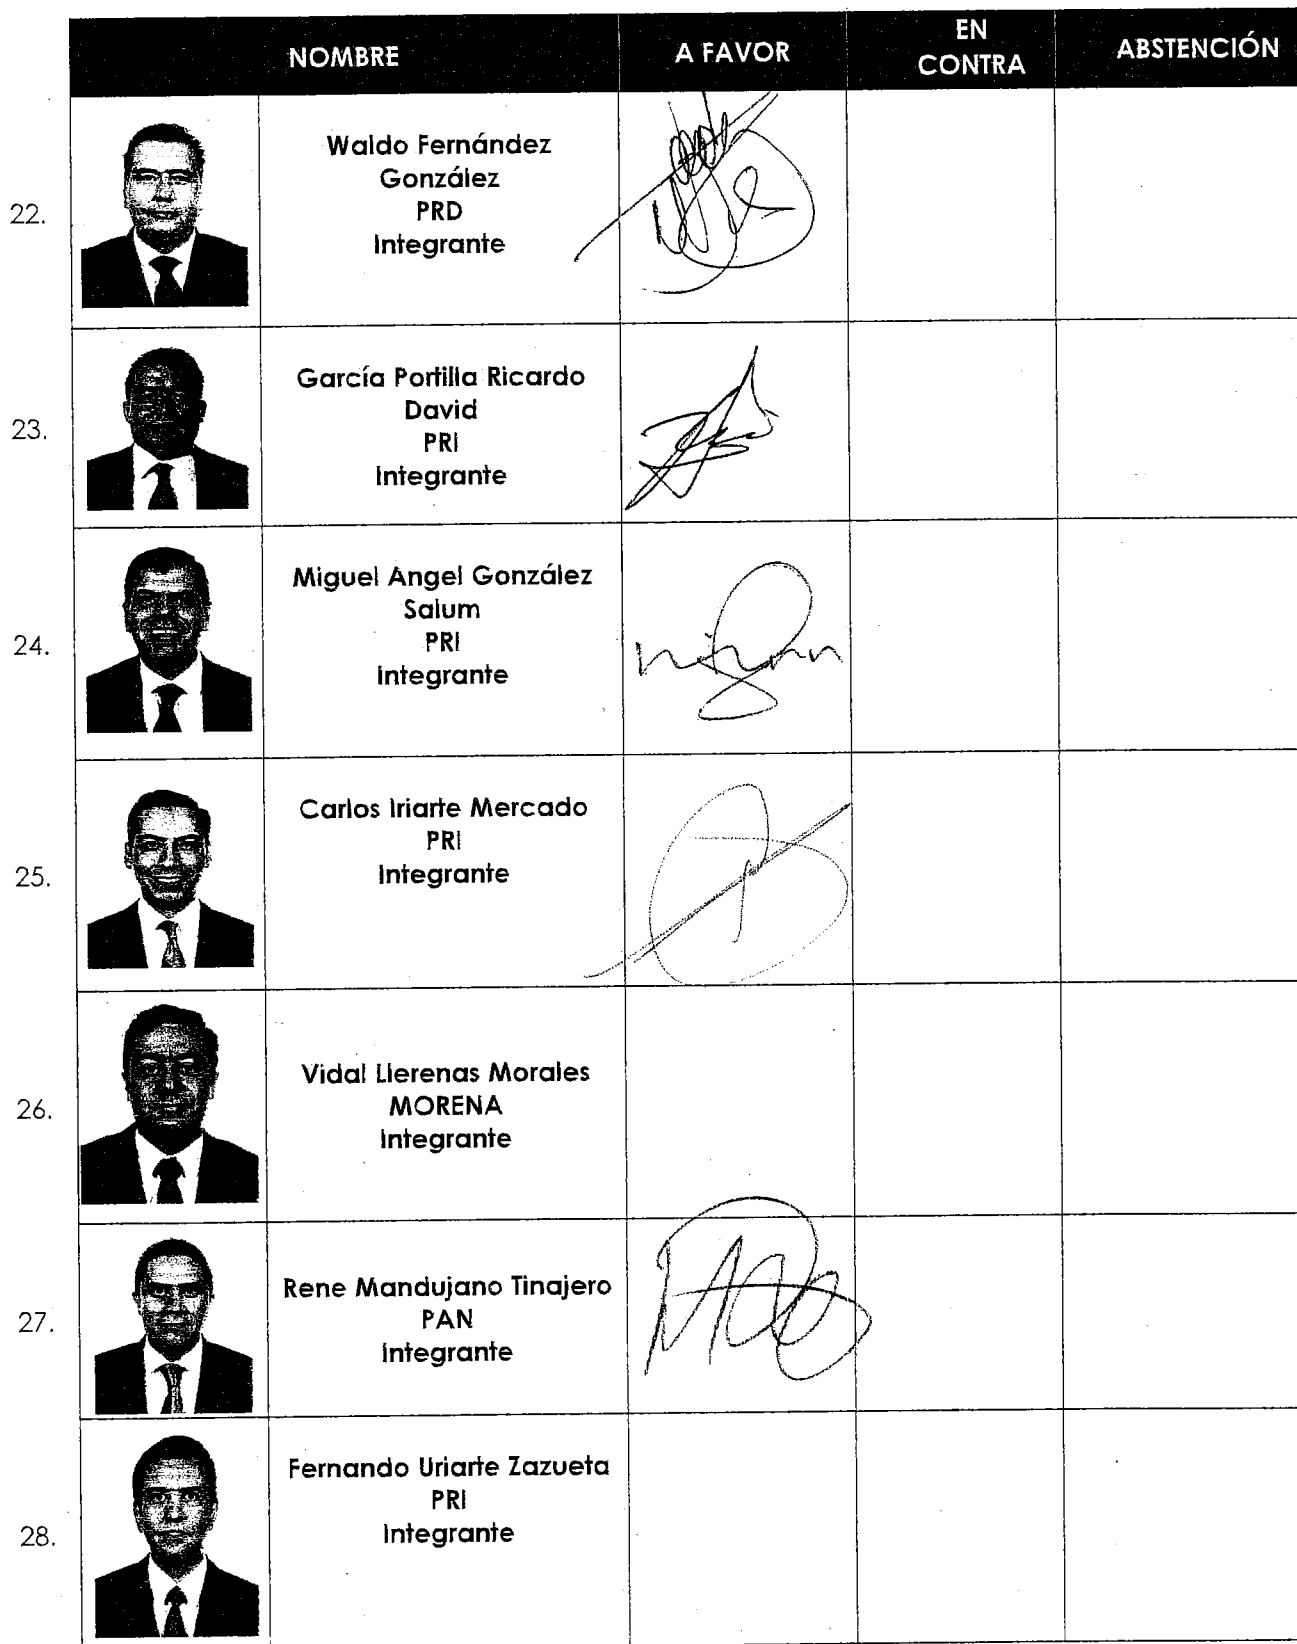 NOMBRE A FAVOR EN CONTRA ABSTENCIÓN
22.
Waldo Fernández
González
PRD
Integrante
23.
García Portilla Ricardo
David
PRI
Integrante
24.
Miguel Angel González
Salum
PRI
Integrante
25.
Carlos Iriarte Mercado
PRI
Integrante
26.
Vidal Llerenas Morales
MORENA
Integrante
27.
Rene Mandujano Tinajero
PAN
Integrante
28.
Fernando Uriarte Zazueta
PRI
Integrante